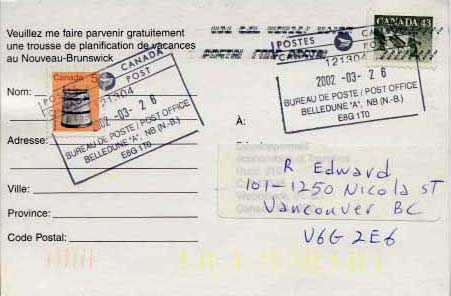 Veuillez me faire parvenir gratuitement
une trousse de planification de vacances
au Nouveau-Brunswick
Nom:
Adresse:
Ville:
Province:
Code Postal:
Canada 5
CANADA
POST
121304
2002 -03- 2 6
BUREAU DE POSTE / POST OFFICE
BELLEDUNE "A", NB (N.-B.)
E8G 1T0
CANADA 43
POSTES CANADA
POST
121304
2002 -03- 2 6
BUREAU DE POSTE / POST OFFICE
BELLEDUNE "A", NB (N.-B.)
E8G 1T0
À:
R Edward
101-1250 Nicola ST
Vancouver BC
V6G 2E6